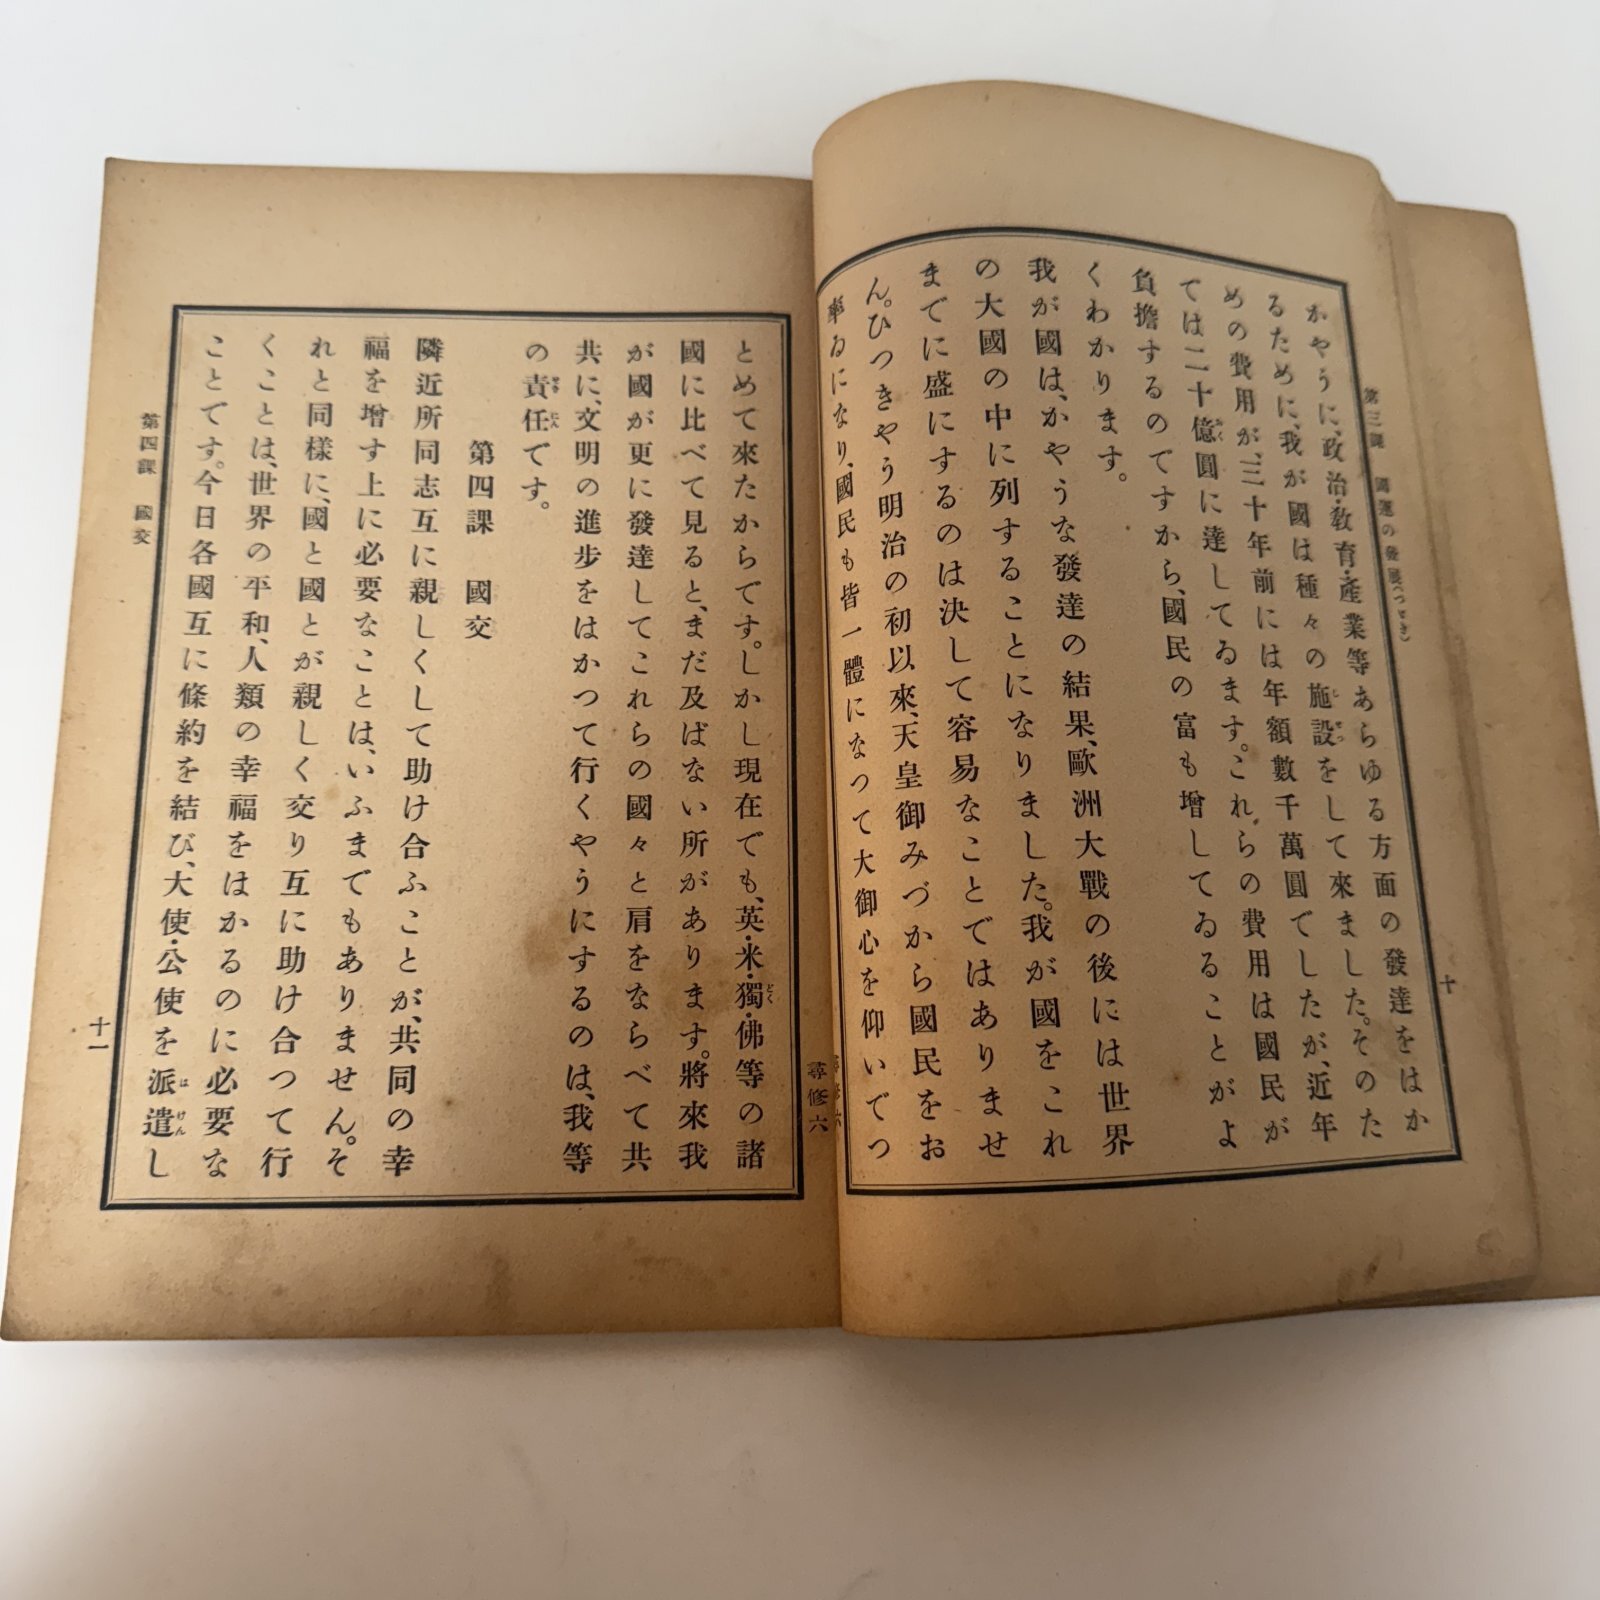 第三課 國運の發展(つゞき)
十
かやうに、政治・教育・產業等あらゆる方面の發達をはか
るために、我が國は種々の施設をして來ました。そのた
めの費用が、三十年前には年額數千萬圓でしたが、近年
では二十億圓に達してゐます。これらの費用は國民が
負擔するのですから、國民の富も增してゐることがよ
くわかります。
我が國は、かやうな發達の結果、歐洲大戰の後には世界
の大國の中に列することになりました。我が國をこれ
までに盛にするのは決して容易なことではありませ
ん。ひつきやう明治の初以來、天皇御みづから國民をお
率ゐになり、國民も皆一體になつて大御心を仰いでつ
尋修六
とめて來たからです。しかし現在でも、英・米・獨・佛等の諸
國に比べて見ると、まだ及ばない所があります。將來我
が國が更に發達してこれらの國々と肩をならべて共
共に、文明の進步をはかつて行くやうにするのは、我等
の責任です。
第四課 國交
隣近所同志互に親しくして助け合ふことが、共同の幸
福を增す上に必要なことは、いふまでもありません。そ
れと同樣に、國と國とが親しく交り互に助け合つて行
くことは、世界の平和、人類の幸福をはかるのに必要な
ことです。今日各國互に條約を結び、大使・公使を派遣し
第四課 國交
十一